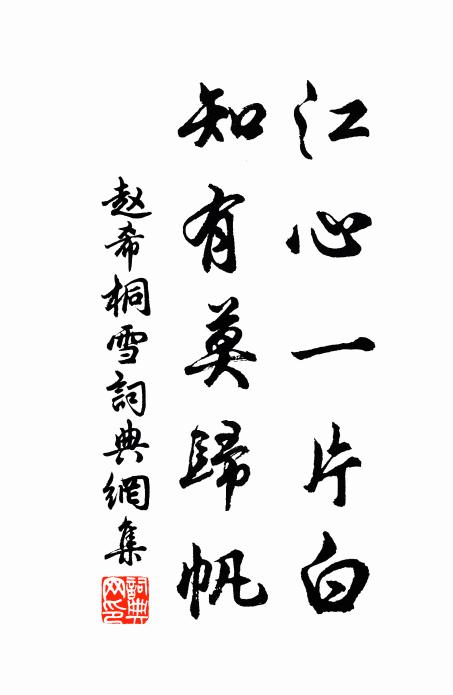 江心一片白
知有莫歸帆
赵希桐雪詞典網集
詞典网印